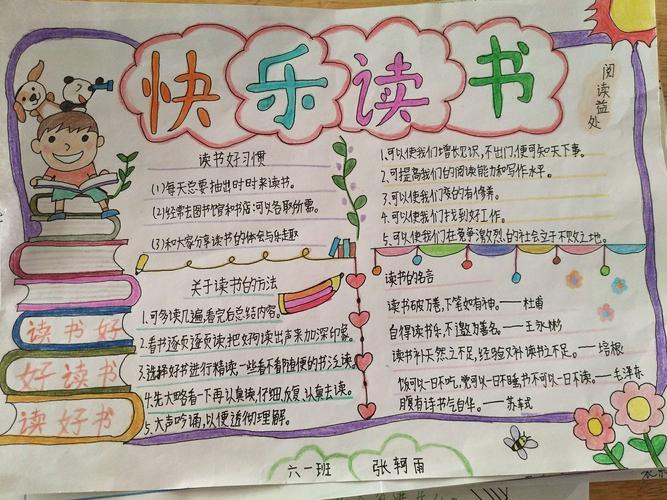 快乐读书
阅读益处
读书好习惯
(1)每天总要抽出时时来读书。
(2)经常去图书馆和书店;可以各取所需。
(3)和大家分享读书的体会与乐趣
1.可以使我们增长见识,不出门,便可知天下事。
2.可提高我们的阅读能力和写作水平。
3.可以使我们变的有修养。
4.可以使我们找到好工作。
5.可以使我们在竞争激烈的社会立于不败之地。
关于读书的方法
1.可多读几遍,看完自总结内容。
2.看书逐页逐页读,把好词读出声来加深印象。
3.选择好书进行精读,一些看不随便的书泛读。
4.先大略看一下再认真读,仔细,反复,认真去读。
5.大声吟诵,以便透彻理解。
读书的名言
读书破万卷,下笔如有神。——杜甫
自得读书乐,不邀为善名。——王永彬
读书补天然之不足,经验又补读书之不足。——培根
饭可以一日不吃,觉可以一日不睡,书不可以一日不读。——毛泽东
腹有诗书气自华。——苏轼
读书好
好读书
读好书
六一班 张轲雨